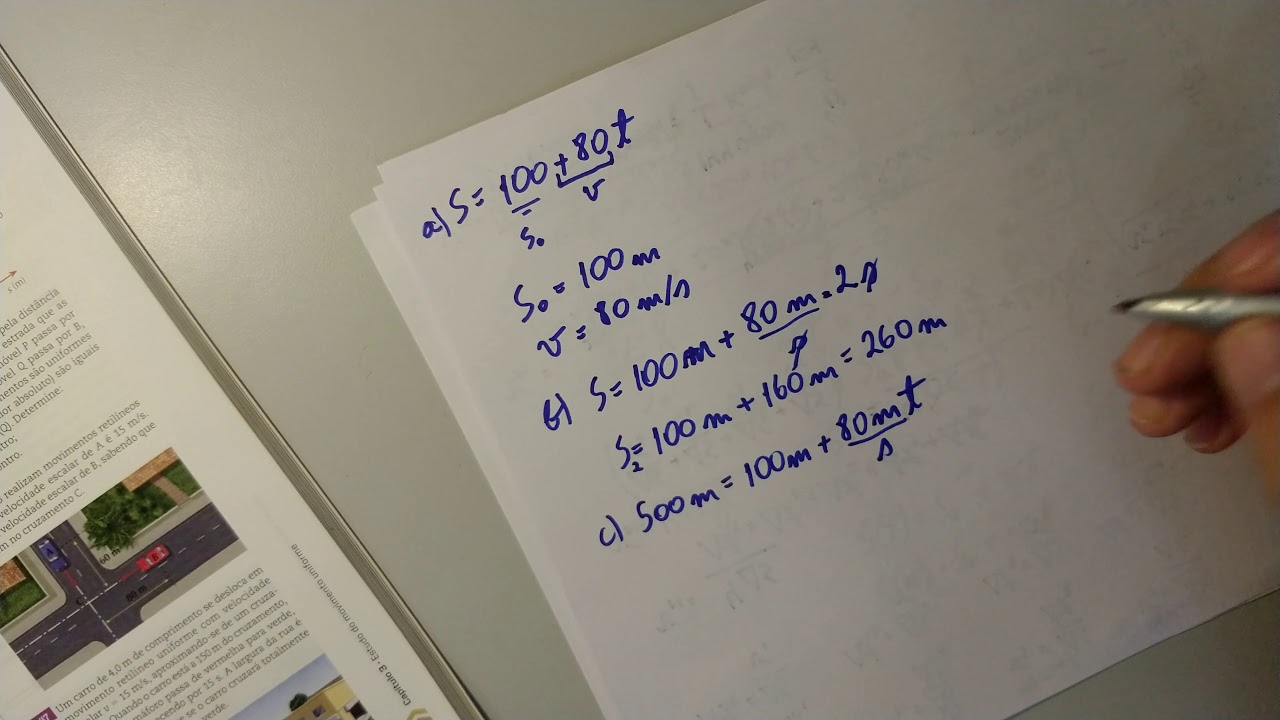 s (m)
pela distância
estrada que as
óvel P passa por
vel Q passa por B,
mentos são uniformes
or absoluto) são iguais
Q). Determine:
ntro;
ontro.
realizam movimentos retilíneos
velocidade escalar de A é 15 m/s.
velocidade escalar de B, sabendo que
m no cruzamento C.
A
60 m
B
C
80 m
Um carro de 4,0 m de comprimento se desloca em
movimento retilíneo uniforme com velocidade
lar v = 15 m/s, aproximando-se de um cruza-
Quando o carro está a 150 m do cruzamento,
máforo passa de vermelha para verde,
ecendo por 15 s. A largura da rua é
e se o carro cruzará totalmente
verde.
Capítulo 3 · Estudo do movimento uniforme
a) S = 100 + 80 t
S₀ v
S₀ = 100 m
v = 80 m/s
b) S = 100 m + 80 m · 2 s
s
S₂ = 100 m + 160 m = 260 m
c) 500 m = 100 m + 80 m t
s